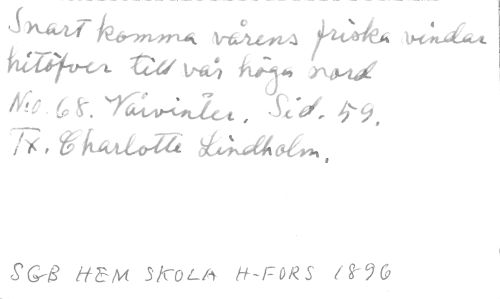 Snart komma vårens friska vindar
hitöfver till vår höga nord
N:o 68. Vårvinter. Sid. 59.
Tx. Charlotte Lindholm.
SGB HEM SKOLA H-FORS 1896